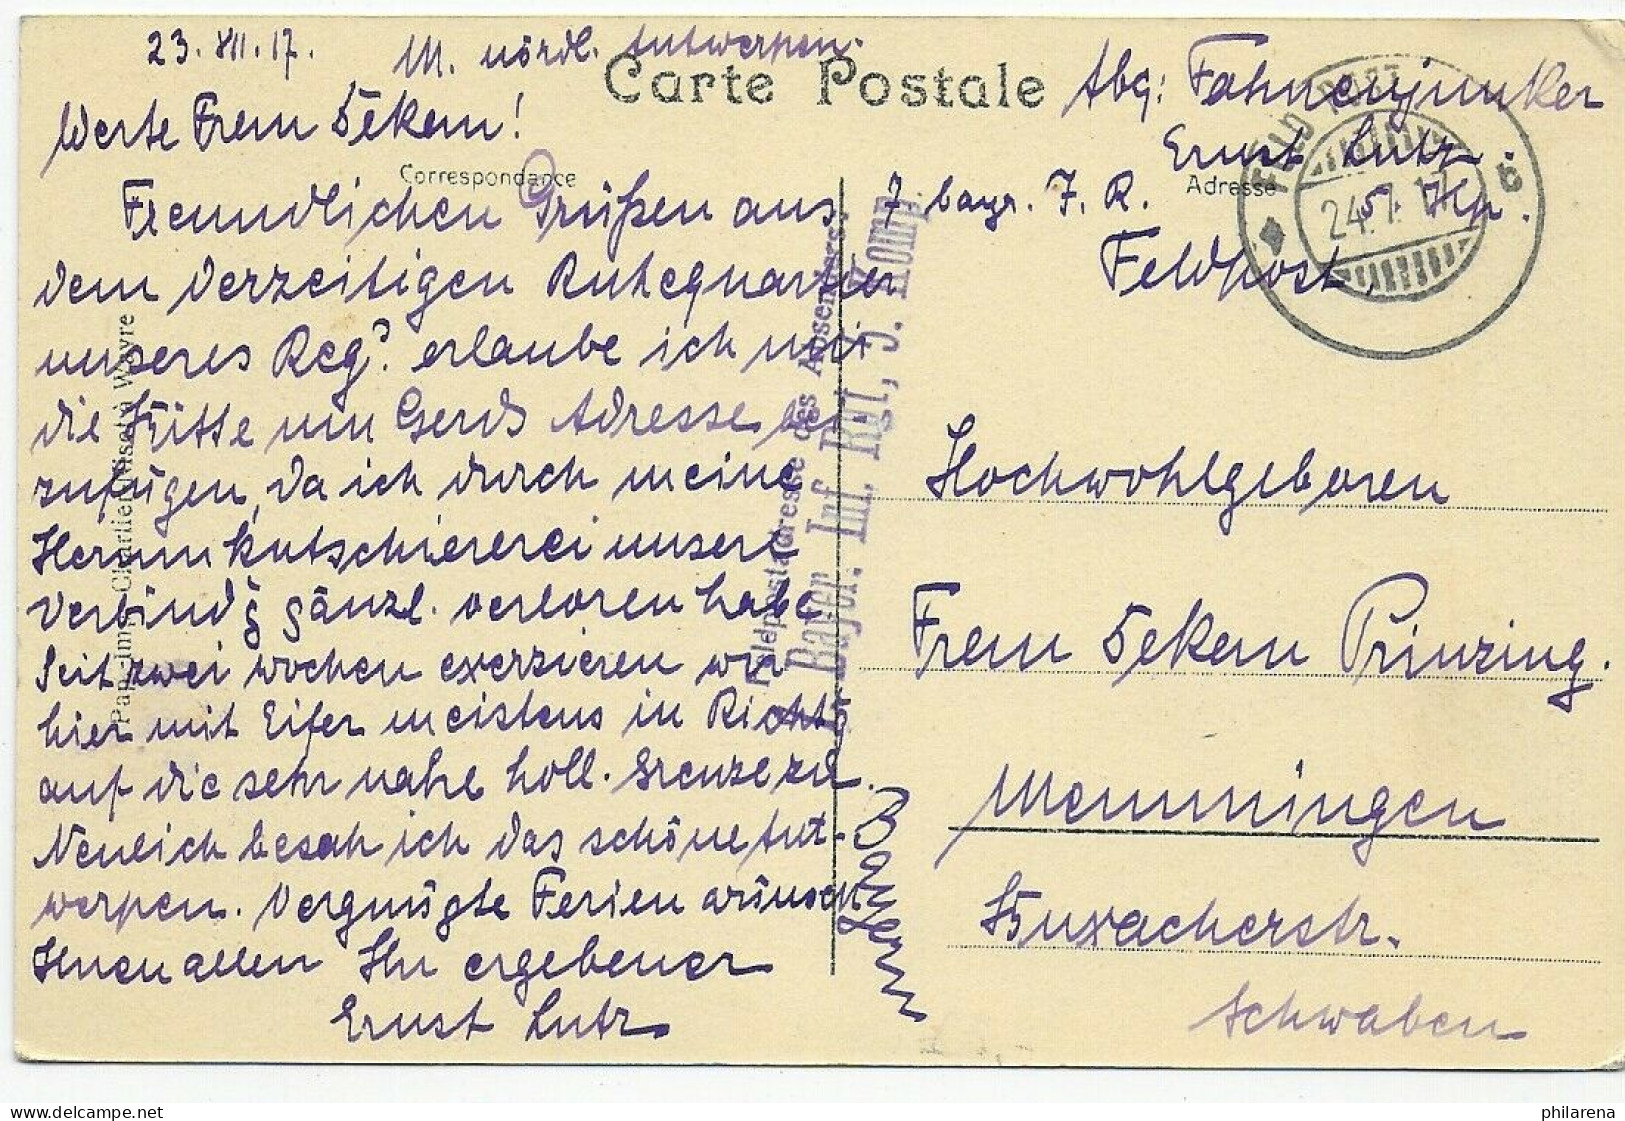 23. VII. 17. M. nördl. Antwerpen.
Carte Postale
Werte Frau Dekan!
Correspondance
Freundlichen Grüßen aus
dem derzeitigen Ruhequartier
unseres Reg? erlaube ich mir
die Bitte um Gerds Adresse bei
zufügen, da ich durch meine
Herumkutschiererei unsere
Verbindg gänzl. verloren habe.
Seit zwei Wochen exerzieren wir
hier mit Eifer meistens in Richtg
auf die sehr nahe holl. Grenze zu.
Neulich besah ich das schöne Ant-
werpen. Vergnügte Ferien wünscht
Ihnen allen Ihr ergebener
Ernst Lutz
Abg: Fahnenjunker
Ernst Lutz.
Adresse
7 bayr. J. R. 5. Kp.
Feldpost
FELDPOST
24.7.17
c
Feldpostadresse des Absenders:
Bayer. Inf. Rgt, 5. Komp.
Hochwohlgeboren
Frau Dekan Prinzing.
Memmingen
Buxacherstr.
Schwaben
Bayern
philarena.com